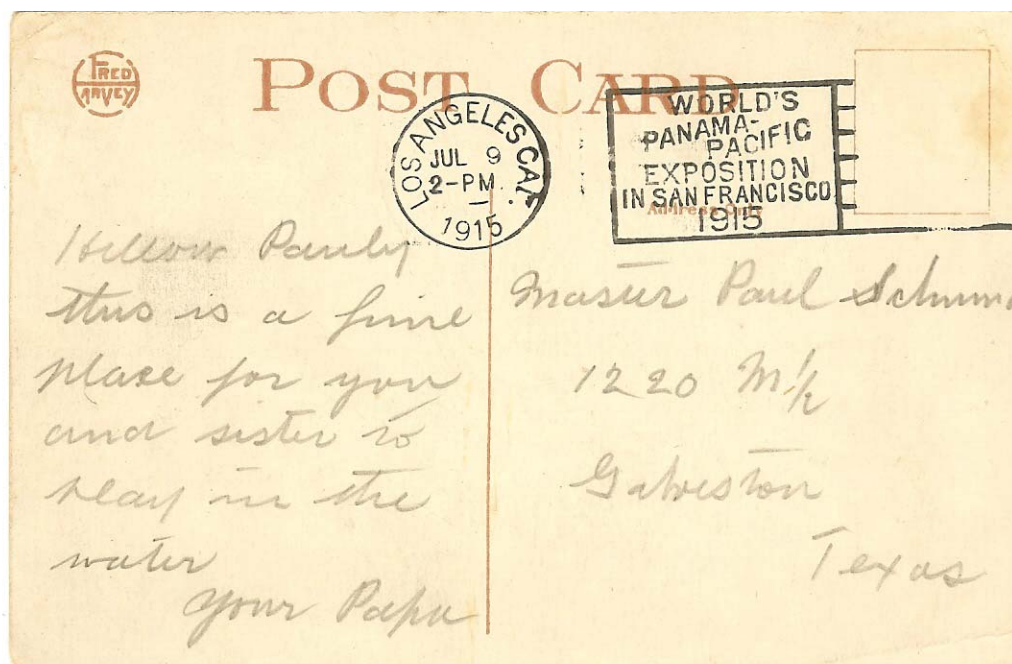 FRED
HARVEY
POST CARD
LOS ANGELES CAL.
JUL 9
2-PM
1915
WORLD'S
PANAMA-
PACIFIC
EXPOSITION
IN SAN FRANCISCO
1915
Address Only
Hellow Pauly
this is a fine
place for you
and sister to
play in the
water
your Papa
Master Paul
1220 M½
Galveston
Texas